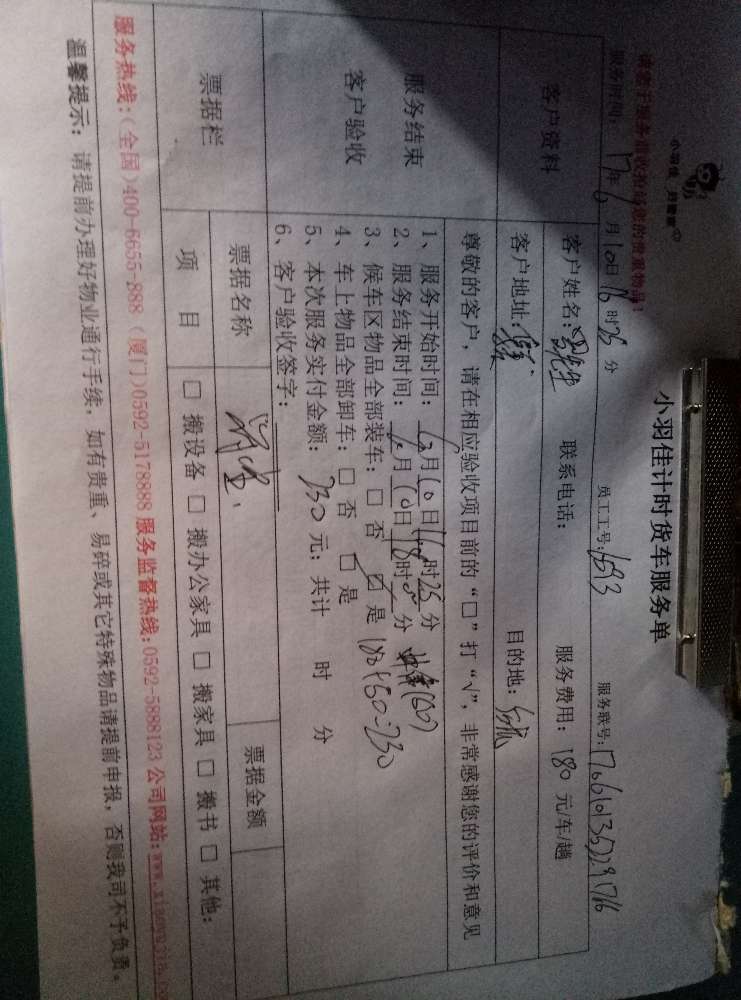 小羽佳 好管家
小羽佳计时货车服务单
请您于服务前收拾好您的贵重物品!
服务时间: 17年6月10日16时25分 员工工号: 1593 服务联号:
客户资料
客户姓名: 先生 联系电话: 服务费用: 180 元/车/趟
客户地址: 目的地:
尊敬的客户,请在相应验收项目前的“□”打“√”,非常感谢您的评价和意见
服务结束
客户验收
1、服务开始时间: 6月10日16时25分
2、服务结束时间: 6月10日18时 分
3、候车区物品全部装车: □ 否 □ 是 180+50=230
4、车上物品全部卸车: □ 否 □ 是
5、本次服务实付金额: 230 元; 共计 时 分
6、客户验收签字:
票据栏
票据名称 票据金额
项 目 □ 搬设备 □ 搬办公家具 □ 搬家具 □ 搬书 □ 其他:
服务热线:(全国)400-6655-888 (厦门)0592-5178888 服务监督热线:0592-5888123 公司网站:
温馨提示: 请提前办理好物业通行手续,如有贵重、易碎或其它特殊物品请提前申报,否则我司不予负责。